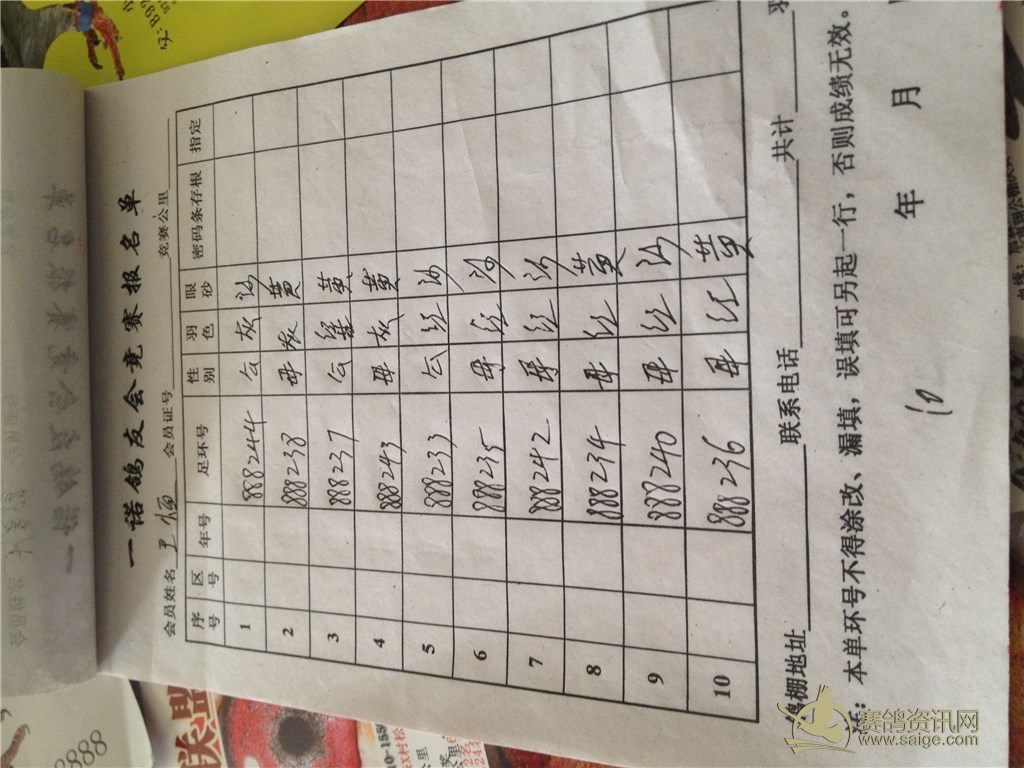 一诺鸽友会竞赛报名单
会员姓名 会员证号 竞赛公里
序号 区号 年号 足环号 性别 羽色 眼砂 密码条存根 指定
1 888244 公 灰 沙
2 888238 母 灰 黄
3 888237 公 黄
4 888243 母 灰 黄
5 888233 公 红 沙
6 888235 母 红 沙
7 888242 母 红 沙
8 888234 母 红 黄
9 888240 母 红 沙
10 888236 母 红 黄
棚地址 联系电话 共计 羽
注：本单环号不得涂改、漏填，误填可另起一行，否则成绩无效。
年 月
10
关盟
10-155
8888
赛鸽资讯网
www.saige.com